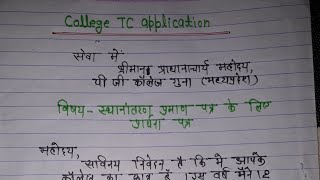 College TC application
सेवा में
श्रीमान प्राधानाचार्य महोदय,
पी जी कॉलेज गुना (मध्यप्रदेश)
विषय- स्थानांतरण प्रमाण पत्र के लिए
प्रार्थना पत्र
महोदय,
सविनय निवेदन है कि मैं आपके
कॉलेज का छात्र हूँ । इस वर्ष मैंने 12